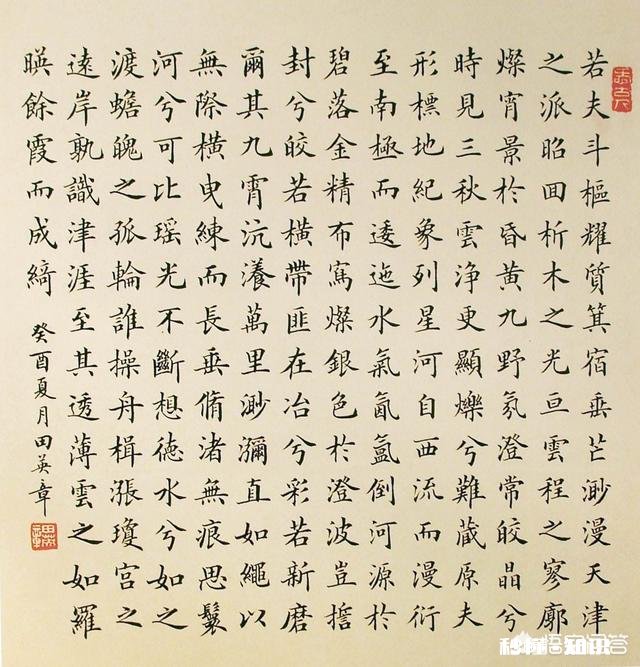 若夫斗樞耀質箕宿垂芒渺漫天津
之派昭回析木之光亘雲程之寥廓
燦宵景於昏黄九野氛澄常皎晶兮
時見三秋雲净更顯爍兮難藏原夫
形標地紀象列星河自西流而漫衍
至南極而逶迤水氣氤氳倒河源於
碧落金精布寫燦銀色於澄波豈
封兮皎若橫帶匪在冶兮彩若新磨
爾其九霄沆瀁萬里渺瀰直如繩以
無際橫曳練而長垂脩渚無痕思
河兮可比瑶光不斷想德水兮如之
渡蟾魄之孤輪誰操舟楫漲瓊宫之
遠岸孰識津涯至其透薄雲之如羅
暎餘霞而成綺
癸酉夏月田英章